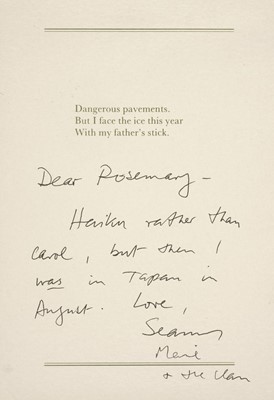 Dangerous pavements.
But I face the ice this year
With my father's stick.
Dear Rosemary –
Haiku rather than
carol, but then I
was in Japan in
August. Love,
Seamus
Marie
& the Clan